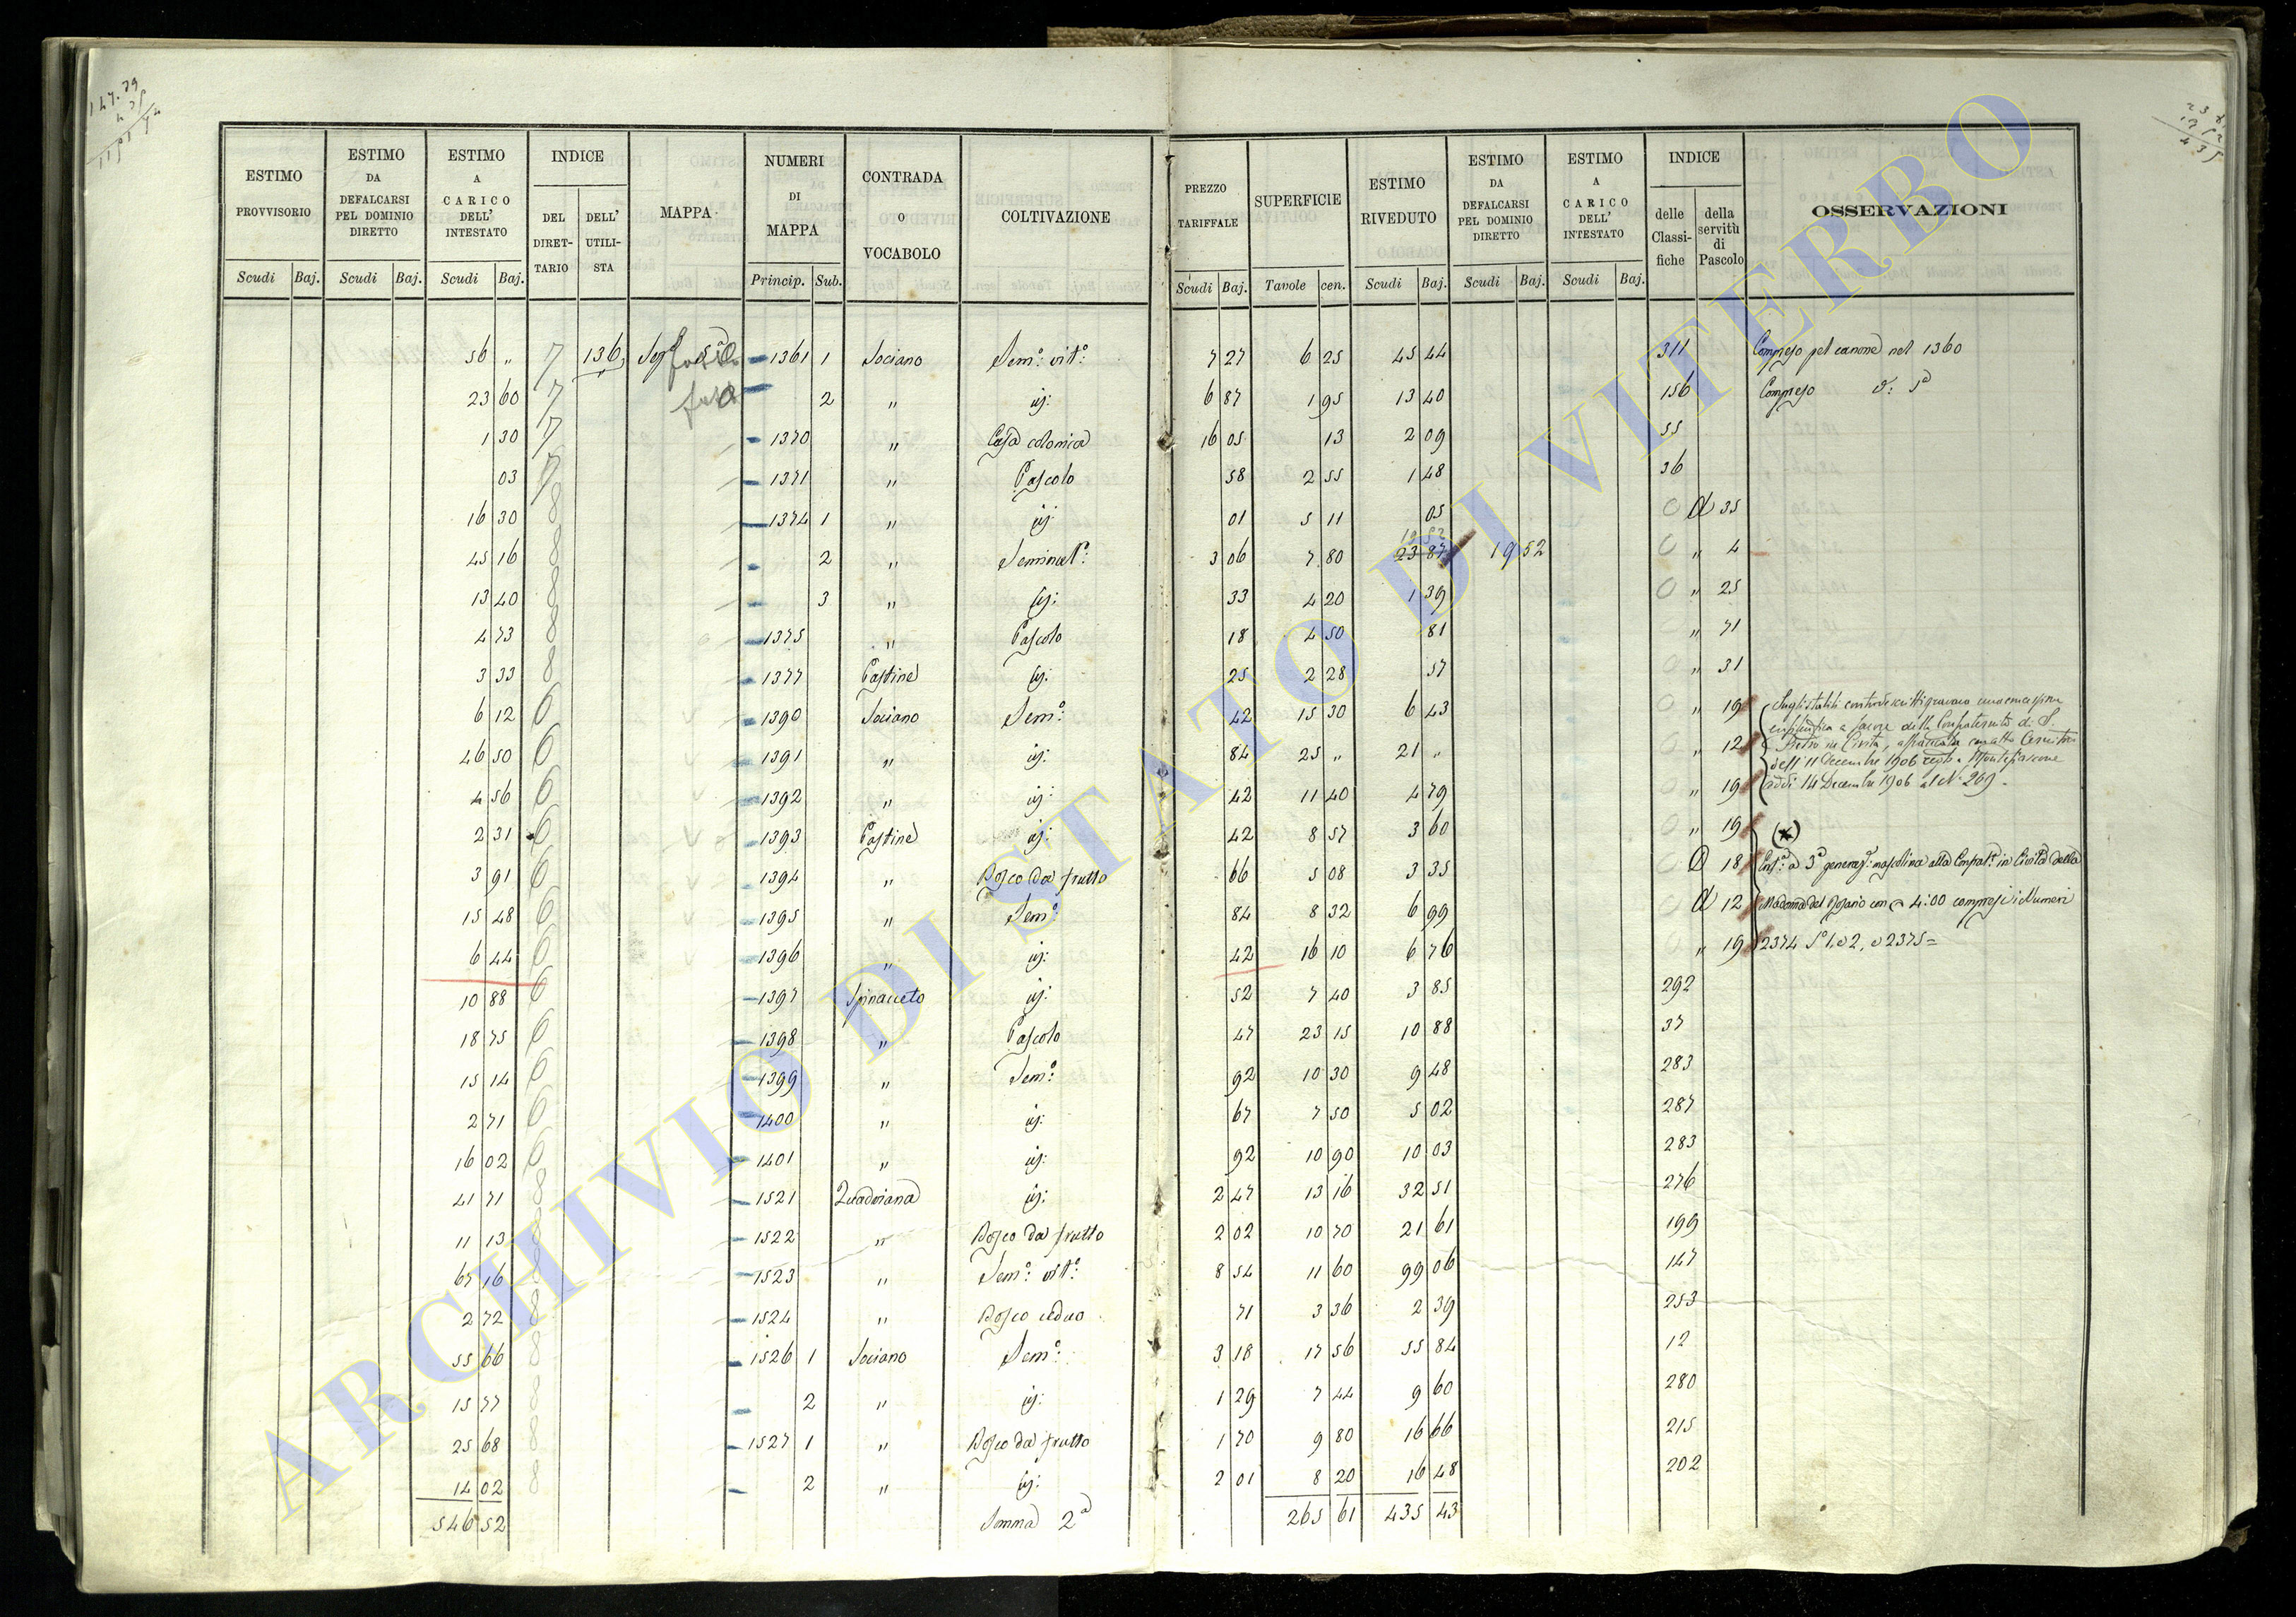 ESTIMO PROVVISORIO | ESTIMO DA DEFALCARSI PEL DOMINIO DIRETTO | ESTIMO A CARICO DELL' INTESTATO | INDICE | MAPPA | NUMERI DI MAPPA | CONTRADA O VOCABOLO | COLTIVAZIONE | PREZZO TARIFFALE | SUPERFICIE | ESTIMO RIVEDUTO | ESTIMO DA DEFALCARSI PEL DOMINIO DIRETTO | ESTIMO A CARICO DELL' INTESTATO | INDICE | OSSERVAZIONI
DEL DIRETTARIO | DELL' UTILISTA | delle Classifiche | della servitù di Pascolo
Scudi | Baj. | Scudi | Baj. | Scudi | Baj. | Princip. | Sub. | Scudi | Baj. | Tavole | cen. | Scudi | Baj. | Scudi | Baj. | Scudi | Baj.
56 „ | 7 | 136 | 1361 | 1 | Sociano | Sem.o vit.o | 7 27 | 6 25 | 45 44 | 311 | Compreso pel canone nel 1360
23 60 | 7 | 2 | „ | id: | 6 87 | 1 95 | 13 40 | 156 | Compreso
1 30 | 7 | 1370 | „ | Casa colonica | 16 05 | 13 | 2 09 | 55
03 | 7 | 1371 | „ | Pascolo | 58 | 2 55 | 1 48 | 36
16 30 | 8 | 1374 | 1 | „ | id: | 01 | 5 11 | 05 | 35
45 16 | 8 | 2 | „ | Seminat.o | 3 06 | 7 80 | 23 87 | 19 52 | „ 4
13 40 | 8 | 3 | „ | id: | 33 | 4 20 | 1 39 | „ 25
4 73 | 8 | 1375 | „ | Pascolo | 18 | 4 50 | 81 | „ 71
3 33 | 8 | 1377 | Pastine | id: | 25 | 2 28 | 57 | „ 31
6 12 | 6 | 1390 | Sociano | Sem.o | 42 | 15 30 | 6 43 | „ 19
46 50 | 6 | 1391 | „ | id: | 84 | 25 „ | 21 „ | „ 12
4 56 | 6 | 1392 | „ | id: | 42 | 11 40 | 4 79 | „ 19
2 31 | 6 | 1393 | Pastine | id: | 42 | 8 57 | 3 60 | „ 19
3 91 | 6 | 1394 | „ | Bosco da frutto | 66 | 5 08 | 3 35 | 18
15 48 | 6 | 1395 | „ | Sem.o | 84 | 8 32 | 6 99 | 12
6 44 | 6 | 1396 | „ | id: | 42 | 16 10 | 6 76 | „ 19
10 88 | 6 | 1397 | Spinacceto | id: | 52 | 7 40 | 3 85 | 292
18 75 | 6 | 1398 | „ | Pascolo | 47 | 23 15 | 10 88 | 37
15 14 | 6 | 1399 | „ | Sem.o | 92 | 10 30 | 9 48 | 283
2 71 | 6 | 1400 | „ | id: | 67 | 7 50 | 5 02 | 287
16 02 | 6 | 1401 | „ | id: | 92 | 10 90 | 10 03 | 283
41 71 | 8 | 1521 | Quadriana | id: | 2 47 | 13 16 | 32 51 | 276
11 13 | 8 | 1522 | „ | Bosco da frutto | 2 02 | 10 70 | 21 61 | 199
67 16 | 8 | 1523 | „ | Sem.o vit.o | 8 54 | 11 60 | 99 06 | 147
2 72 | 8 | 1524 | „ | Bosco ceduo | 71 | 3 36 | 2 39 | 253
55 66 | 8 | 1526 | 1 | Sociano | Sem.o | 3 18 | 17 56 | 55 84 | 12
15 77 | 8 | 2 | „ | id: | 1 29 | 7 44 | 9 60 | 280
25 68 | 8 | 1527 | 1 | „ | Bosco da frutto | 1 70 | 9 80 | 16 66 | 215
14 02 | 8 | 2 | „ | id: | 2 01 | 8 20 | 16 48 | 202
546 52 | Somma 2a | 265 61 | 435 43
enfiteutica a favore della Confraternita di S.
Pietro in Civita,
dell'11 Decembre 1906 Montefiascone
addì 14 Decembre 1906 al N. 269.
a 3a generaz: mascolina alla in Civita della
Madonna del Rosario con 4:00 compresi i Numeri
2374 1. e 2, e 2375 =
ARCHIVIO DI STATO DI VITERBO